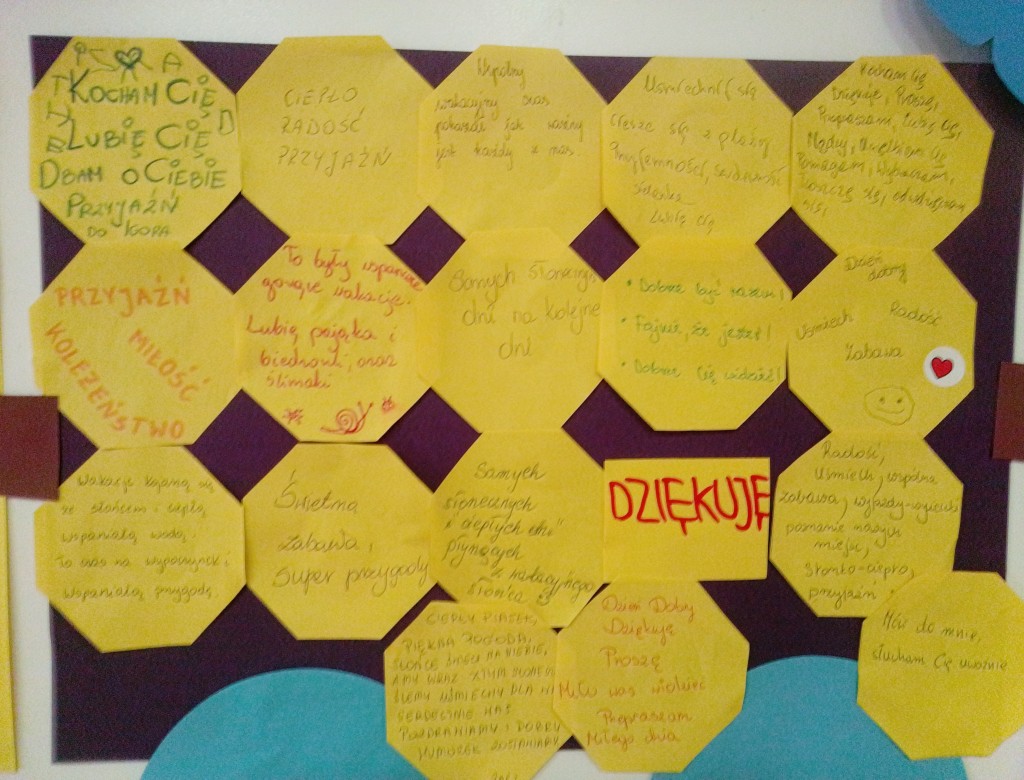 A
KOCHAM CIĘ
LUBIĘ CIĘ
DBAM O CIEBIE
PRZYJAŹŃ
DO
CIEPŁO
RADOŚĆ
PRZYJAŹŃ
Wspólny
wakacyjny czas
pokazał jak ważny
jest każdy z nas.
Uśmiechnij się
cieszę się z
Przyjemności,
Lubię Cię
Kocham Cię
Dziękuję, Proszę,
Przepraszam, Lubię Cię,
Pomagam, Wybaczam,
PRZYJAŹŃ
MIŁOŚĆ
KOLEŻEŃSTWO
To były wspaniałe
gorące wakacje.
Lubię pająka i
biedronki, oraz
ślimaki
Samych słonecznych
dni na kolejne
dni
• Dobrze być razem!
• Fajnie, że jesteś!
• Dobrze Cię widzieć!
Dzień
dobry
Uśmiech
Radość
Zabawa
Wakacje kojarzą się
ze słońcem i ciepłą,
wspaniałą wodą.
To czas na wypoczynek i
wspaniałą przygodę.
Świetna
zabawa,
Super przygody
Samych
słonecznych
i ciepłych dni
płynących
z
słońca
DZIĘKUJĘ
Radość,
Uśmiech, wspólna
zabawa, wyjazdy-wycieczki
poznanie nowych
miejsc,
Słonko-ciepło,
przyjaźń
CIEPŁY PIASEK,
PIĘKNA POGODA,
SŁOŃCE ŚWIECI NA NIEBIE,
A MY WRAZ Z TYM SŁOŃCEM
ŚLEMY UŚMIECHY DLA
SERDECZNIE WAS
POZDRAWIAMY I DOBRY
HUMOREK ZOSTAWIAMY
Dzień Dobry
Dziękuję
Proszę
Miło was widzieć
Przepraszam
Miłego dnia
Mów do mnie,
słucham Cię uważnie